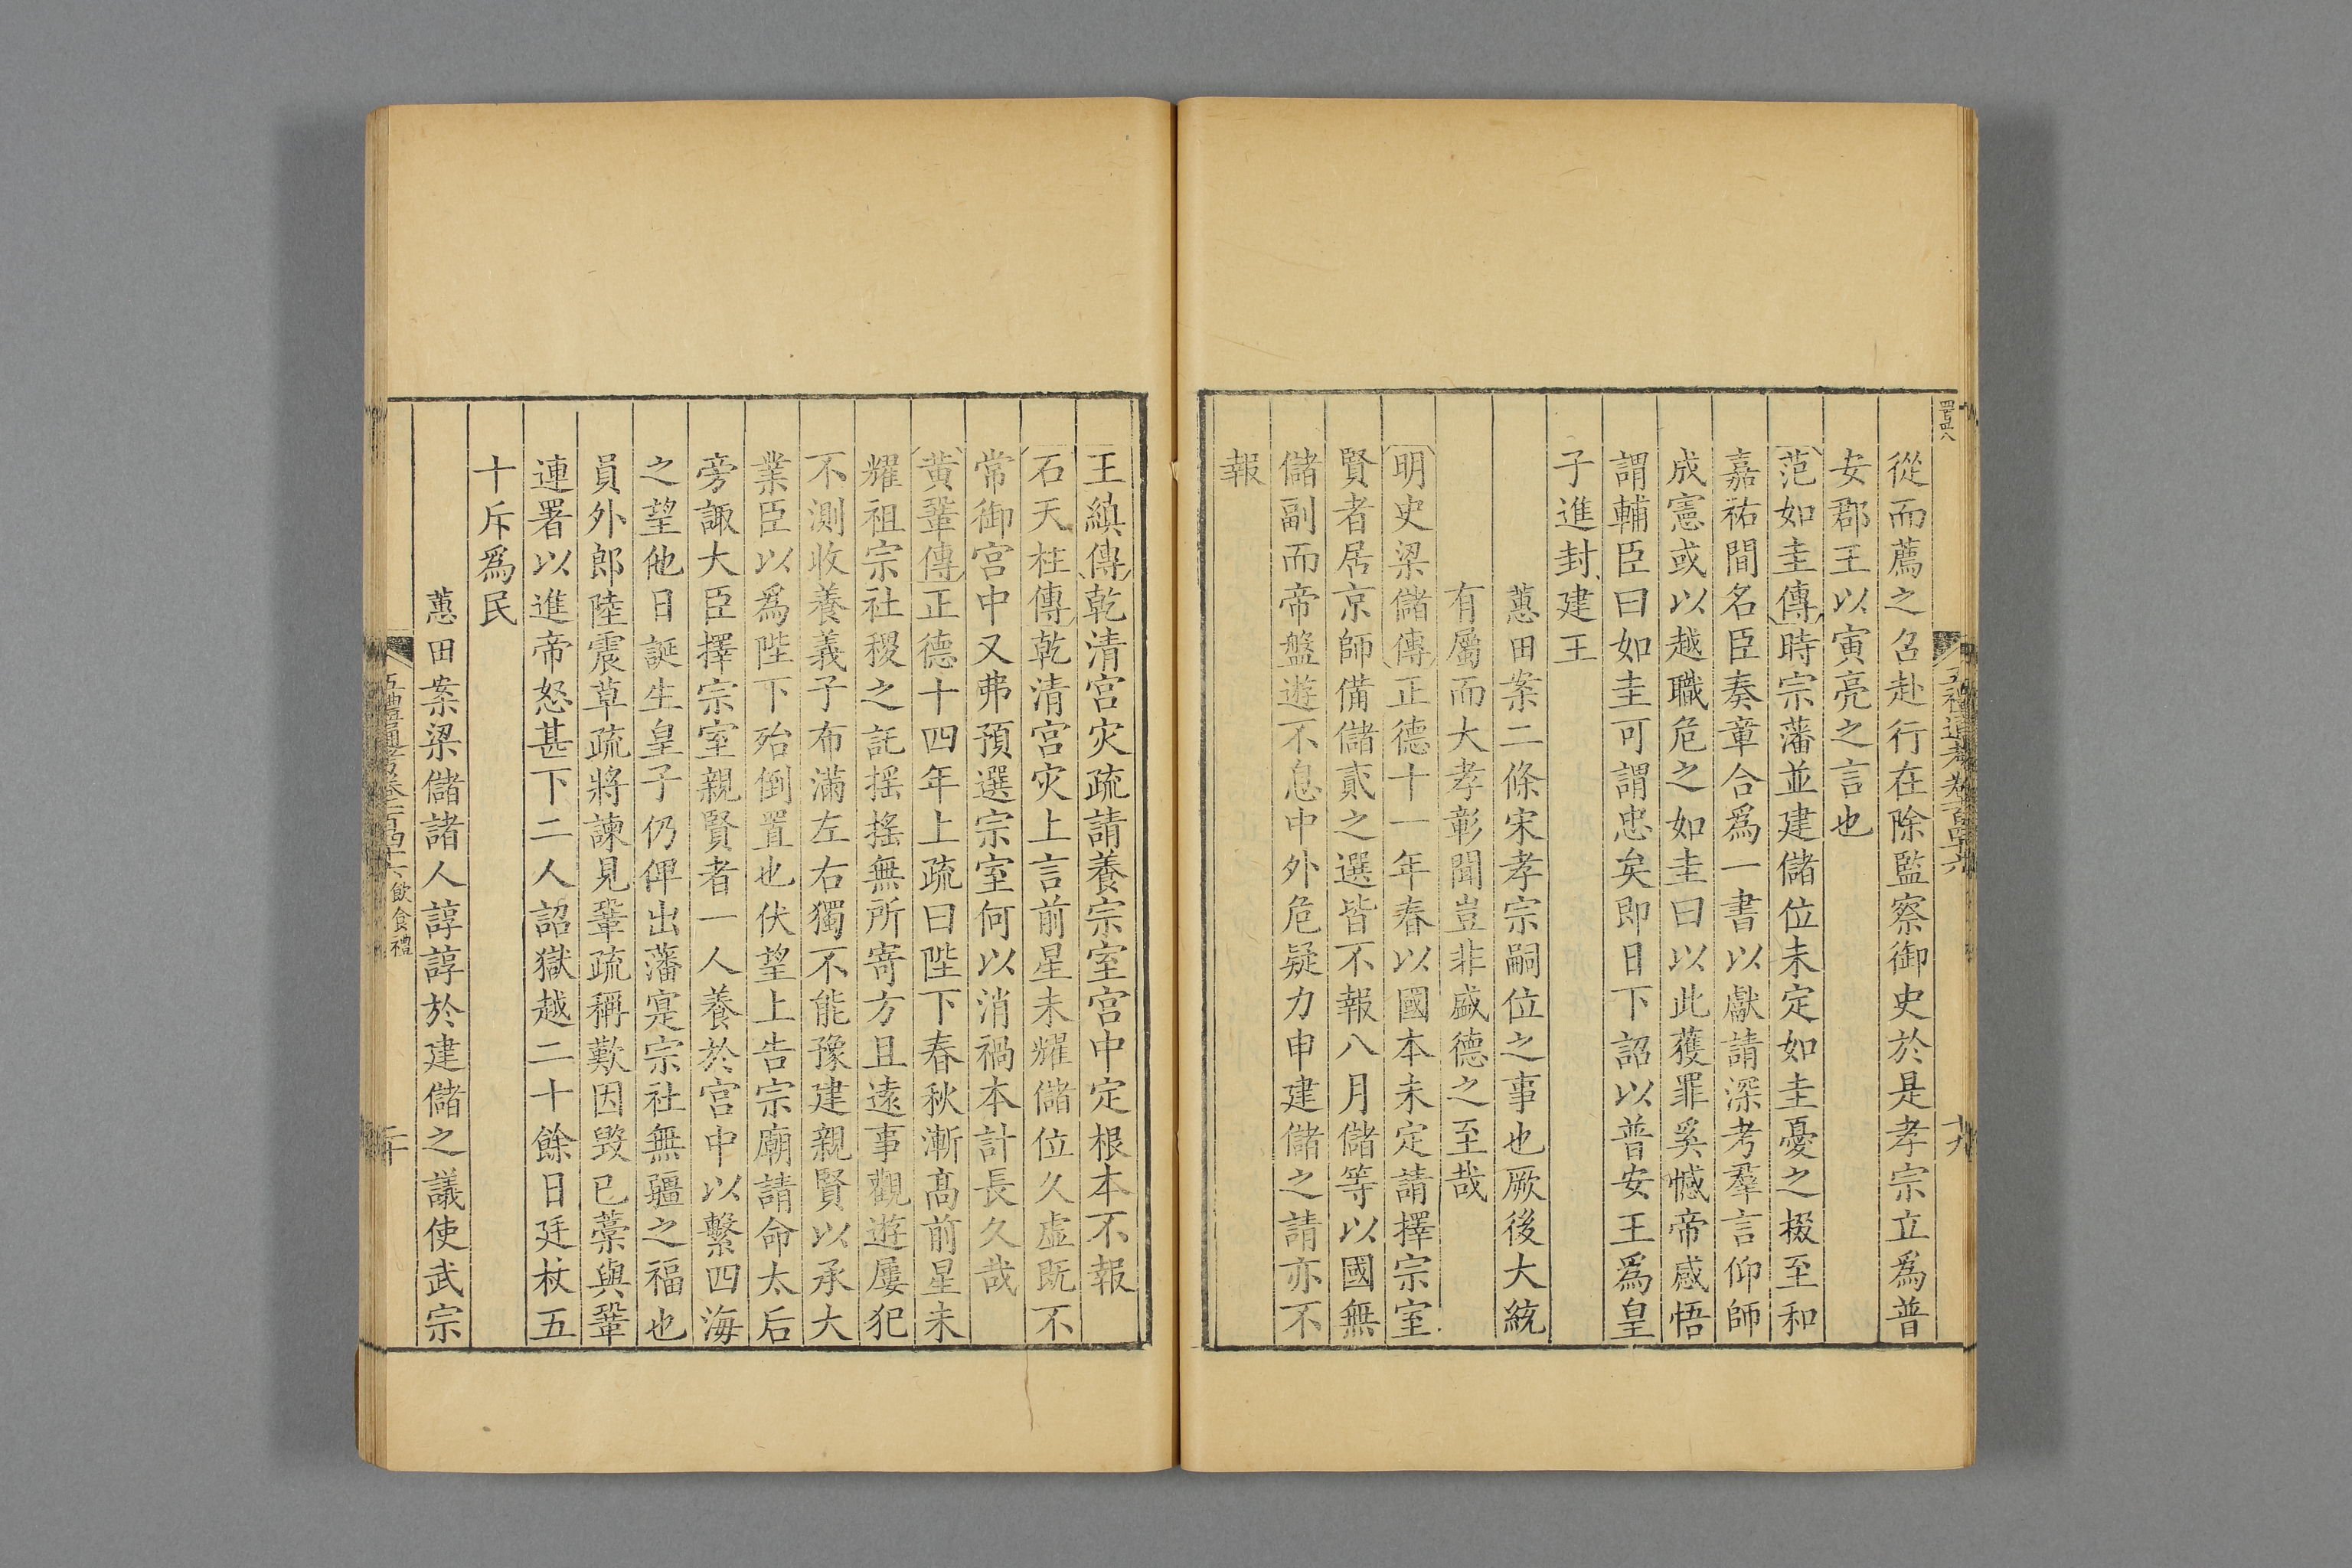 從而薦之召赴行在除監察御史於是孝宗立爲普
安郡王以寅亮之言也
范如圭傳時宗藩並建儲位未定如圭憂之掇至和
嘉祐間名臣奏章合爲一書以獻請深考羣言仰師
成憲或以越職危之如圭曰以此獲罪奚憾帝感悟
謂輔臣曰如圭可謂忠矣即日下詔以普安王爲皇
子進封建王
蕙田案二條宋孝宗嗣位之事也厥後大統
有屬而大孝彰聞豈非盛德之至哉
明史梁儲傳正德十一年春以國本未定請擇宗室
賢者居京師備儲貳之選皆不報八月儲等以國無
儲副而帝盤遊不息中外危疑力申建儲之請亦不
報
王縝傳乾清宮灾疏請養宗室宮中定根本不報
石天柱傳乾清宮灾上言前星未耀儲位久虛既不
常御宮中又弗預選宗室何以消禍本計長久哉
黃鞏傳正德十四年上疏曰陛下春秋漸高前星未
耀祖宗社稷之託摇摇無所寄方且遠事觀遊屢犯
不測收養義子布滿左右獨不能豫建親賢以承大
業臣以爲陛下殆倒置也伏望上告宗廟請命太后
旁諏大臣擇宗室親賢者一人養於宮中以繫四海
之望他日誕生皇子仍俾出藩寔宗社無疆之福也
員外郎陸震草疏將諫見鞏疏稱歎因毀已藁與鞏
連署以進帝怒甚下二人詔獄越二十餘日廷杖五
十斥爲民
蕙田案梁儲諸人諄諄於建儲之議使武宗
五禮通考卷一百四十六 飲食禮
二十